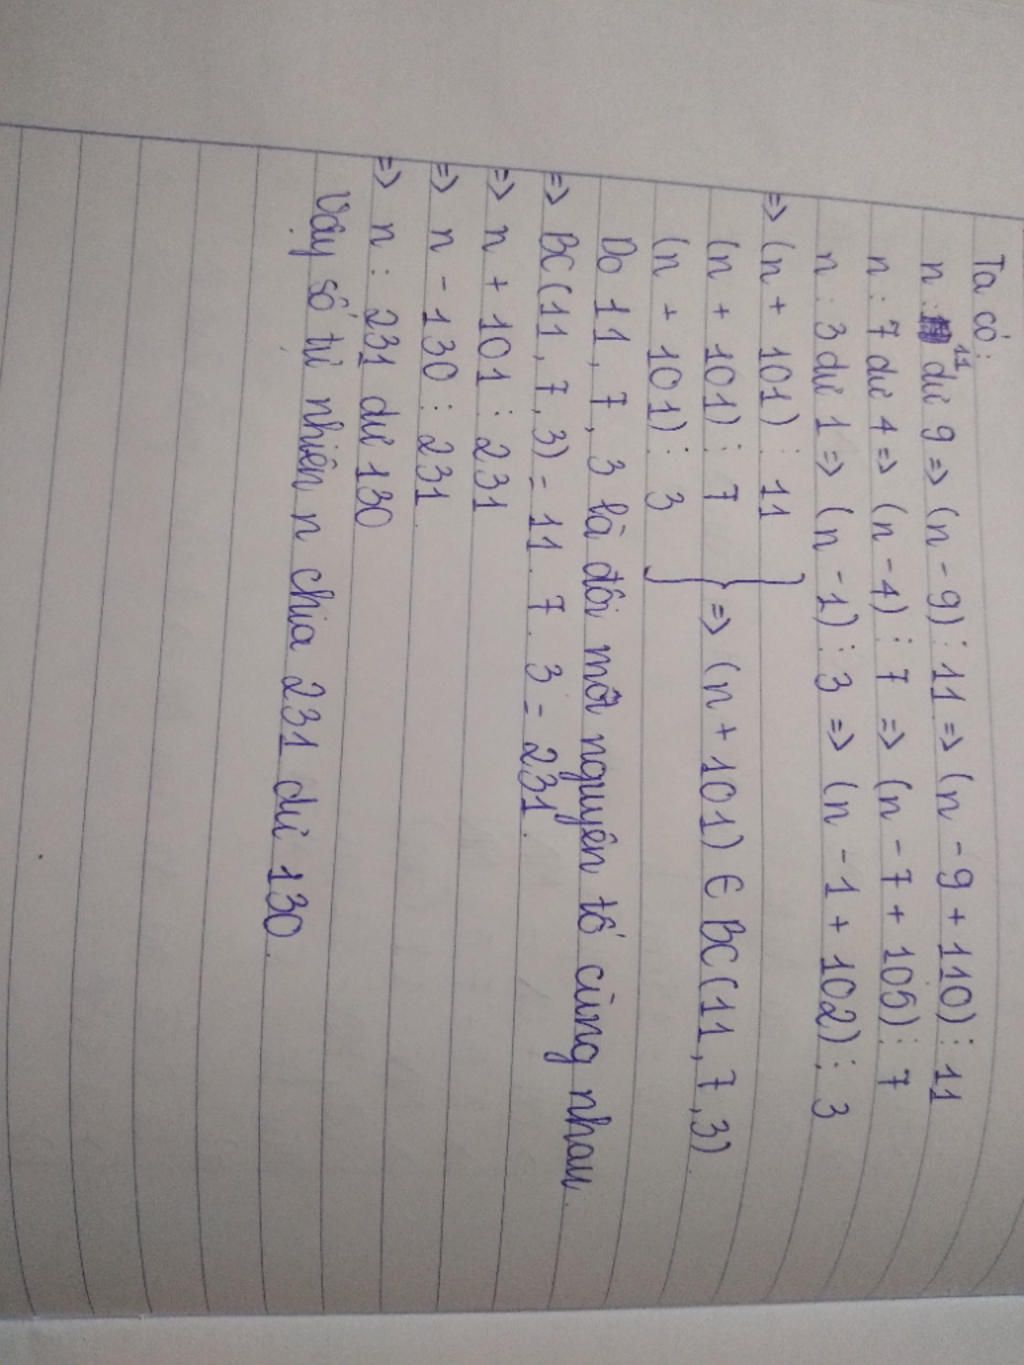 Ta có:
n : 11 dư 9 => (n - 9) ⋮ 11 => (n - 9 + 110) ⋮ 11
n : 7 dư 4 => (n - 4) ⋮ 7 => (n - 7 + 105) ⋮ 7
n : 3 dư 1 => (n - 1) ⋮ 3 => (n - 1 + 102) ⋮ 3
=> (n + 101) ⋮ 11
(n + 101) ⋮ 7 } => (n + 101) ∈ BC(11, 7, 3)
(n + 101) ⋮ 3
Do 11, 7, 3 là đôi một nguyên tố cùng nhau
=> BC(11, 7, 3) = 11 . 7 . 3 = 231.
=> n + 101 ⋮ 231
=> n - 130 ⋮ 231
=> n : 231 dư 130
Vậy số tự nhiên n chia 231 dư 130.